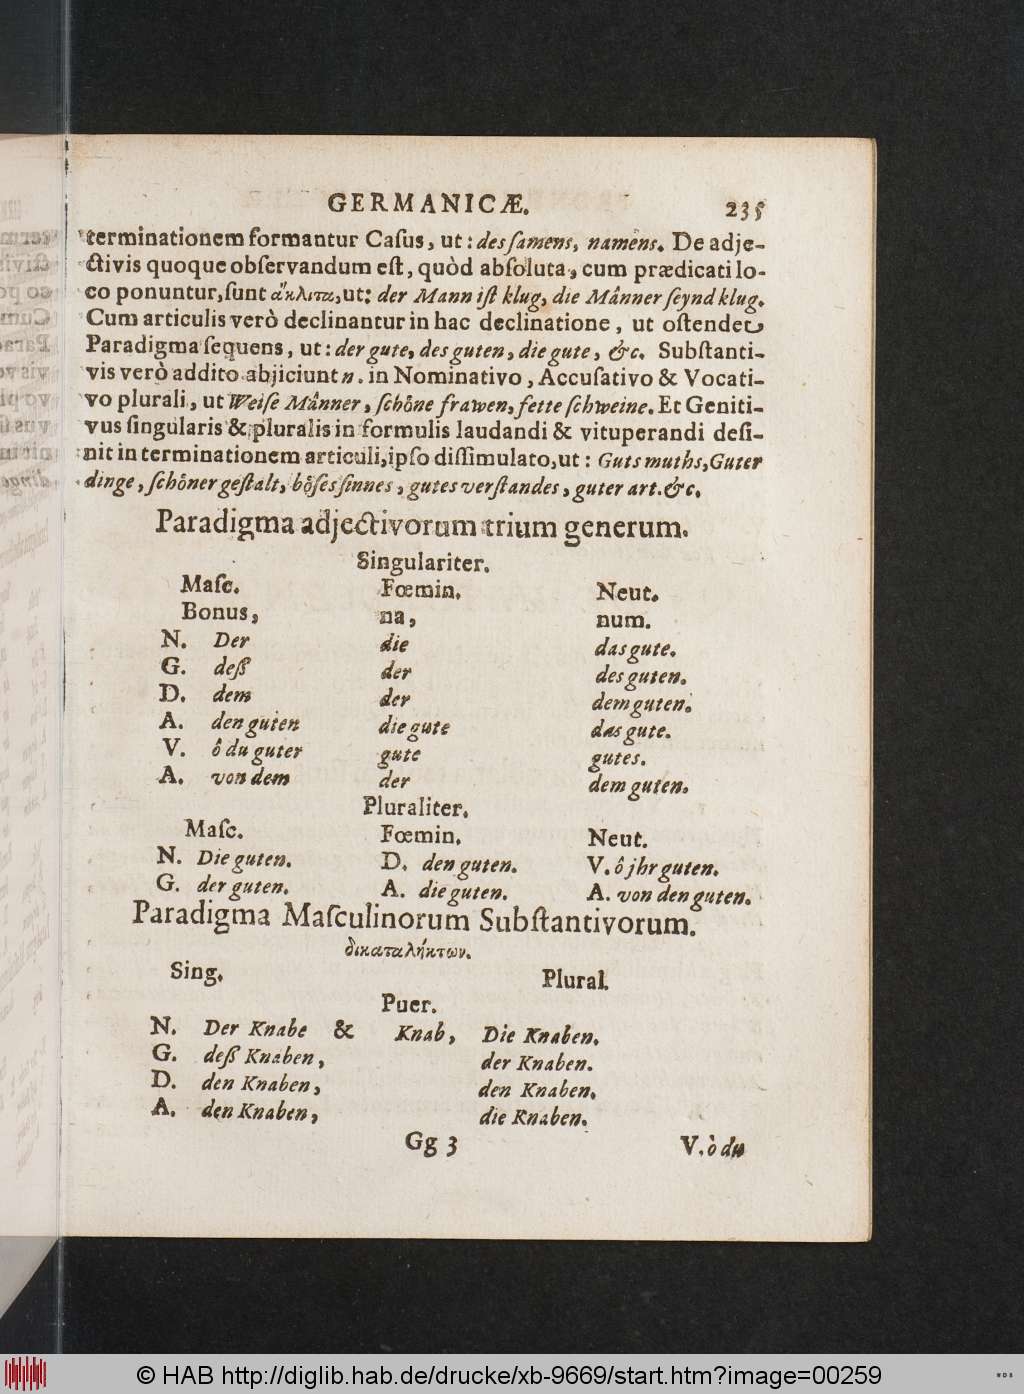 GERMANICÆ. 235
terminationem formantur Caſus, ut: des ſamens, namens. De adje-
ctivis quoque obſervandum eſt, quòd abſoluta, cum prædicati lo-
co ponuntur, ſunt ἄκλιτα, ut: der Mann iſt klug, die Månner ſeynd klug.
Cum articulis verò declinantur in hac declinatione, ut oſtendet
Paradigma ſequens, ut: der gute, des guten, die gute, &c. Subſtanti-
vis verò addito abjiciunt n. in Nominativo, Accuſativo & Vocati-
vo plurali, ut Weiſe Månner, ſchöne frawen, fette ſchweine. Et Geniti-
vus ſingularis & pluralis in formulis laudandi & vituperandi deſi-
nit in terminationem articuli, ipſo diſſimulato, ut: Guts muths, Guter
dinge, ſchöner geſtalt, böſes ſinnes, gutes verſtandes, guter art. &c.
Paradigma adjectivorum trium generum.
Singulariter.
Maſc. Fœmin. Neut.
Bonus, na, num.
N. Der die das gute.
G. deß der des guten.
D. dem der dem guten.
A. den guten die gute das gute.
V. ô du guter gute gutes.
A. von dem der dem guten.
Pluraliter.
Maſc. Fœmin. Neut.
N. Die guten. D. den guten. V. ô jhr guten.
G. der guten. A. die guten. A. von den guten.
Paradigma Maſculinorum Subſtantivorum.
δικαταλήκτων.
Sing. Plural.
Puer.
N. Der Knabe & Knab, Die Knaben.
G. deß Knaben, der Knaben.
D. den Knaben, den Knaben.
A. den Knaben, die Knaben.
Gg 3 V. ò du
© HAB http://diglib.hab.de/drucke/xb-9669/start.htm?image=00259